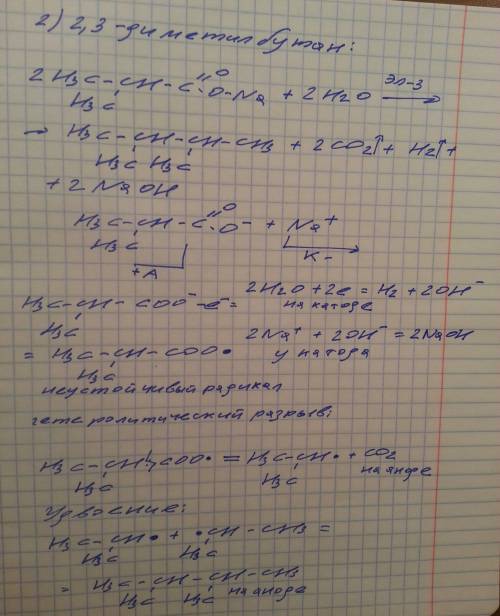 2) 2,3-диметилбутан:
2 H3C-CH-C=O O-Na + 2H2O эл-з →
H3C
→ H3C-CH-CH-CH3 + 2CO2↑ + H2↑ +
H3C H3C
+ 2 NaOH
H3C-CH-C=O O⁻ + Na⁺
H3C
+A K-
H3C-CH-COO⁻ -e⁻ = 2H2O + 2e = H2 + 2OH⁻
H3C на катоде
= H3C-CH-COO• 2Na⁺ + 2OH⁻ = 2NaOH
H3C у катода
неустойчивый радикал
гетеролитический разрыв:
H3C-CH COO• = H3C-CH• + CO2
H3C H3C на аноде
Удвоение:
H3C-CH• + •CH-CH3 =
H3C H3C
= H3C-CH-CH-CH3
H3C H3C на аноде